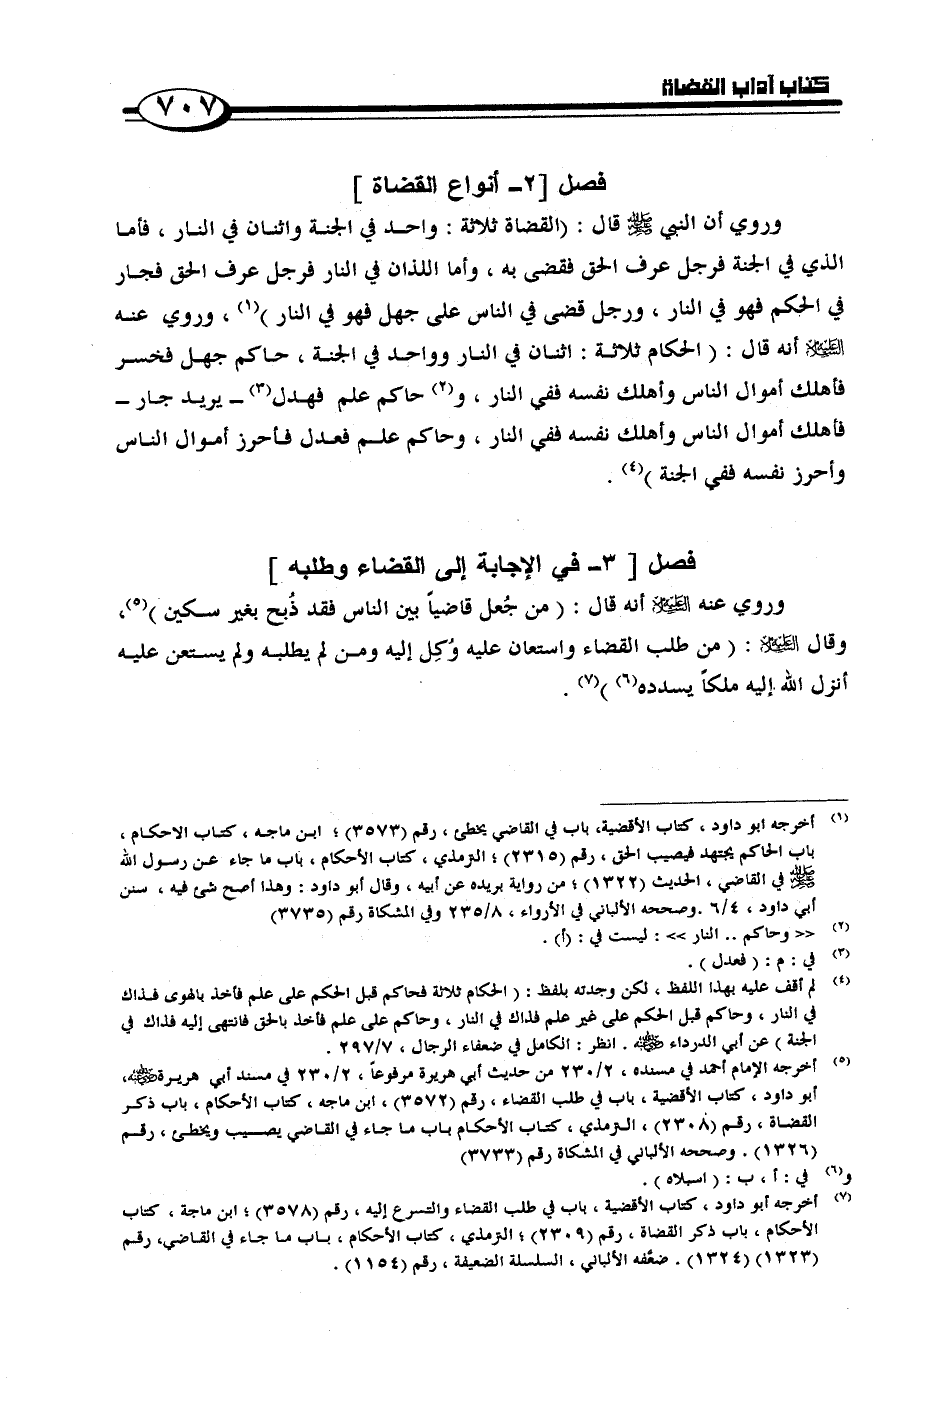 كتاب آداب القضاة
٧٠٧
فصل [٢ـ أنواع القضاة ]
وروي أن النبي ﷺ قال : (القضاة ثلاثة : واحد في الجنة واثنان في النار ، فأما
الذي في الجنة فرجل عرف الحق فقضى به ، وأما اللذان في النار فرجل عرف الحق فجار
في الحكم فهو في النار ، ورجل قضى في الناس على جهل فهو في النار )(١) ، وروي عنه
عليه السلام أنه قال : ( الحكام ثلاثة : اثنان في النار وواحد في الجنة ، حاكم جهل فخسر
فأهلك أموال الناس وأهلك نفسه ففي النار ، و(٢) حاكم علم فهدل(٣) ـ يريد جار ـ
فأهلك أموال الناس وأهلك نفسه ففي النار ، وحاكم علم فعدل فأحرز أموال الناس
وأحرز نفسه ففي الجنة )(٤) .
فصل [ ٣ـ في الإجابة إلى القضاء وطلبه ]
وروي عنه عليه السلام أنه قال : ( من جُعل قاضياً بين الناس فقد ذُبح بغير سكين )(٥)،
وقال عليه السلام : ( من طلب القضاء واستعان عليه وُكِل إليه ومن لم يطلبه ولم يستعن عليه
أنزل الله إليه ملكاً يسدده(٦) )(٧) .
(١) أخرجه ابو داود ، كتاب الأقضية، باب في القاضي يخطئ ، رقم (٣٥٧٣) ؛ ابن ماجه ، كتاب الاحكام ،
باب الحاكم يجتهد فيصيب الحق ، رقم (٢٣١٥) ؛ الترمذي ، كتاب الأحكام ، باب ما جاء عن رسول الله
ﷺ في القاضي ، الحديث (١٣٢٢) ؛ من رواية بريده عن أبيه ، وقال أبو داود : وهذا أصح شئ فيه ، سنن
أبي داود ، ٦/٤ .وصححه الألباني في الأرواء ، ٢٣٥/٨ وفي المشكاة رقم (٣٧٣٥)
(٢) << وحاكم .. النار >> : ليست في : (أ) .
(٣) في : م : ( فعدل ) .
(٤) لم أقف عليه بهذا اللفظ ، لكن وجدته بلفظ : ( الحكام ثلاثة فحاكم قبل الحكم على علم فأخذ بالهوى فذاك
في النار ، وحاكم قبل الحكم على غير علم فذاك في النار ، وحاكم على علم فأخذ بالحق فانتهى إليه فذاك في
الجنة ) عن أبي الدرداء رضي الله عنه . انظر : الكامل في ضعفاء الرجال ، ٢٩٧/٧ .
(٥) أخرجه الإمام أحمد في مسنده ، ٢٣٠/٢ من حديث أبي هريرة مرفوعاً ، ٢٣٠/٢ في مسند أبي هريرة رضي الله عنه،
أبو داود ، كتاب الأقضية ، باب في طلب القضاء ، رقم (٣٥٧٢) ، ابن ماجه ، كتاب الأحكام ، باب ذكر
القضاة ، رقم (٢٣٠٨) ، الترمذي ، كتاب الأحكام باب ما جاء في القاضي يصيب ويخطئ ، رقم
(١٣٢٦) . وصححه الألباني في المشكاة رقم (٣٧٣٣)
و(٦) في : أ ، ب : ( اسبلاه ) .
(٧) أخرجه أبو داود ، كتاب الأقضية ، باب في طلب القضاء والتسرع إليه ، رقم (٣٥٧٨) ؛ ابن ماجة ، كتاب
الأحكام ، باب ذكر القضاة ، رقم (٢٣٠٩) ؛ الترمذي ، كتاب الأحكام ، باب ما جاء في القاضي، رقم
(١٣٢٣) (١٣٢٤) . ضعّفه الألباني ، السلسلة الضعيفة ، رقم (١١٥٤) .